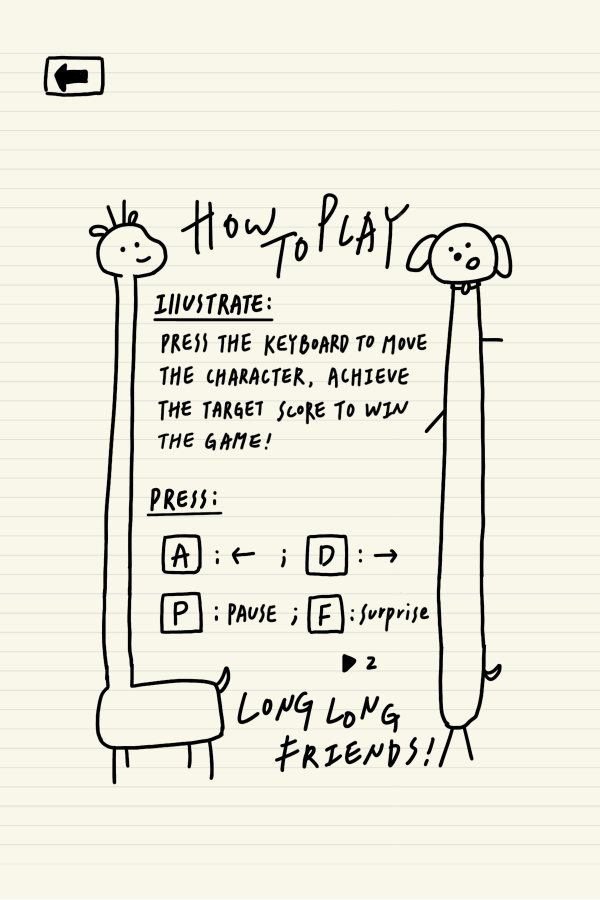 HOW TO PLAY
ILLUSTRATE:
PRESS THE KEYBOARD TO MOVE
THE CHARACTER, ACHIEVE
THE TARGET SCORE TO WIN
THE GAME!
PRESS:
A : ← ; D : →
P : PAUSE ; F : Surprise
▶ 2
LONG LONG
FRIENDS!